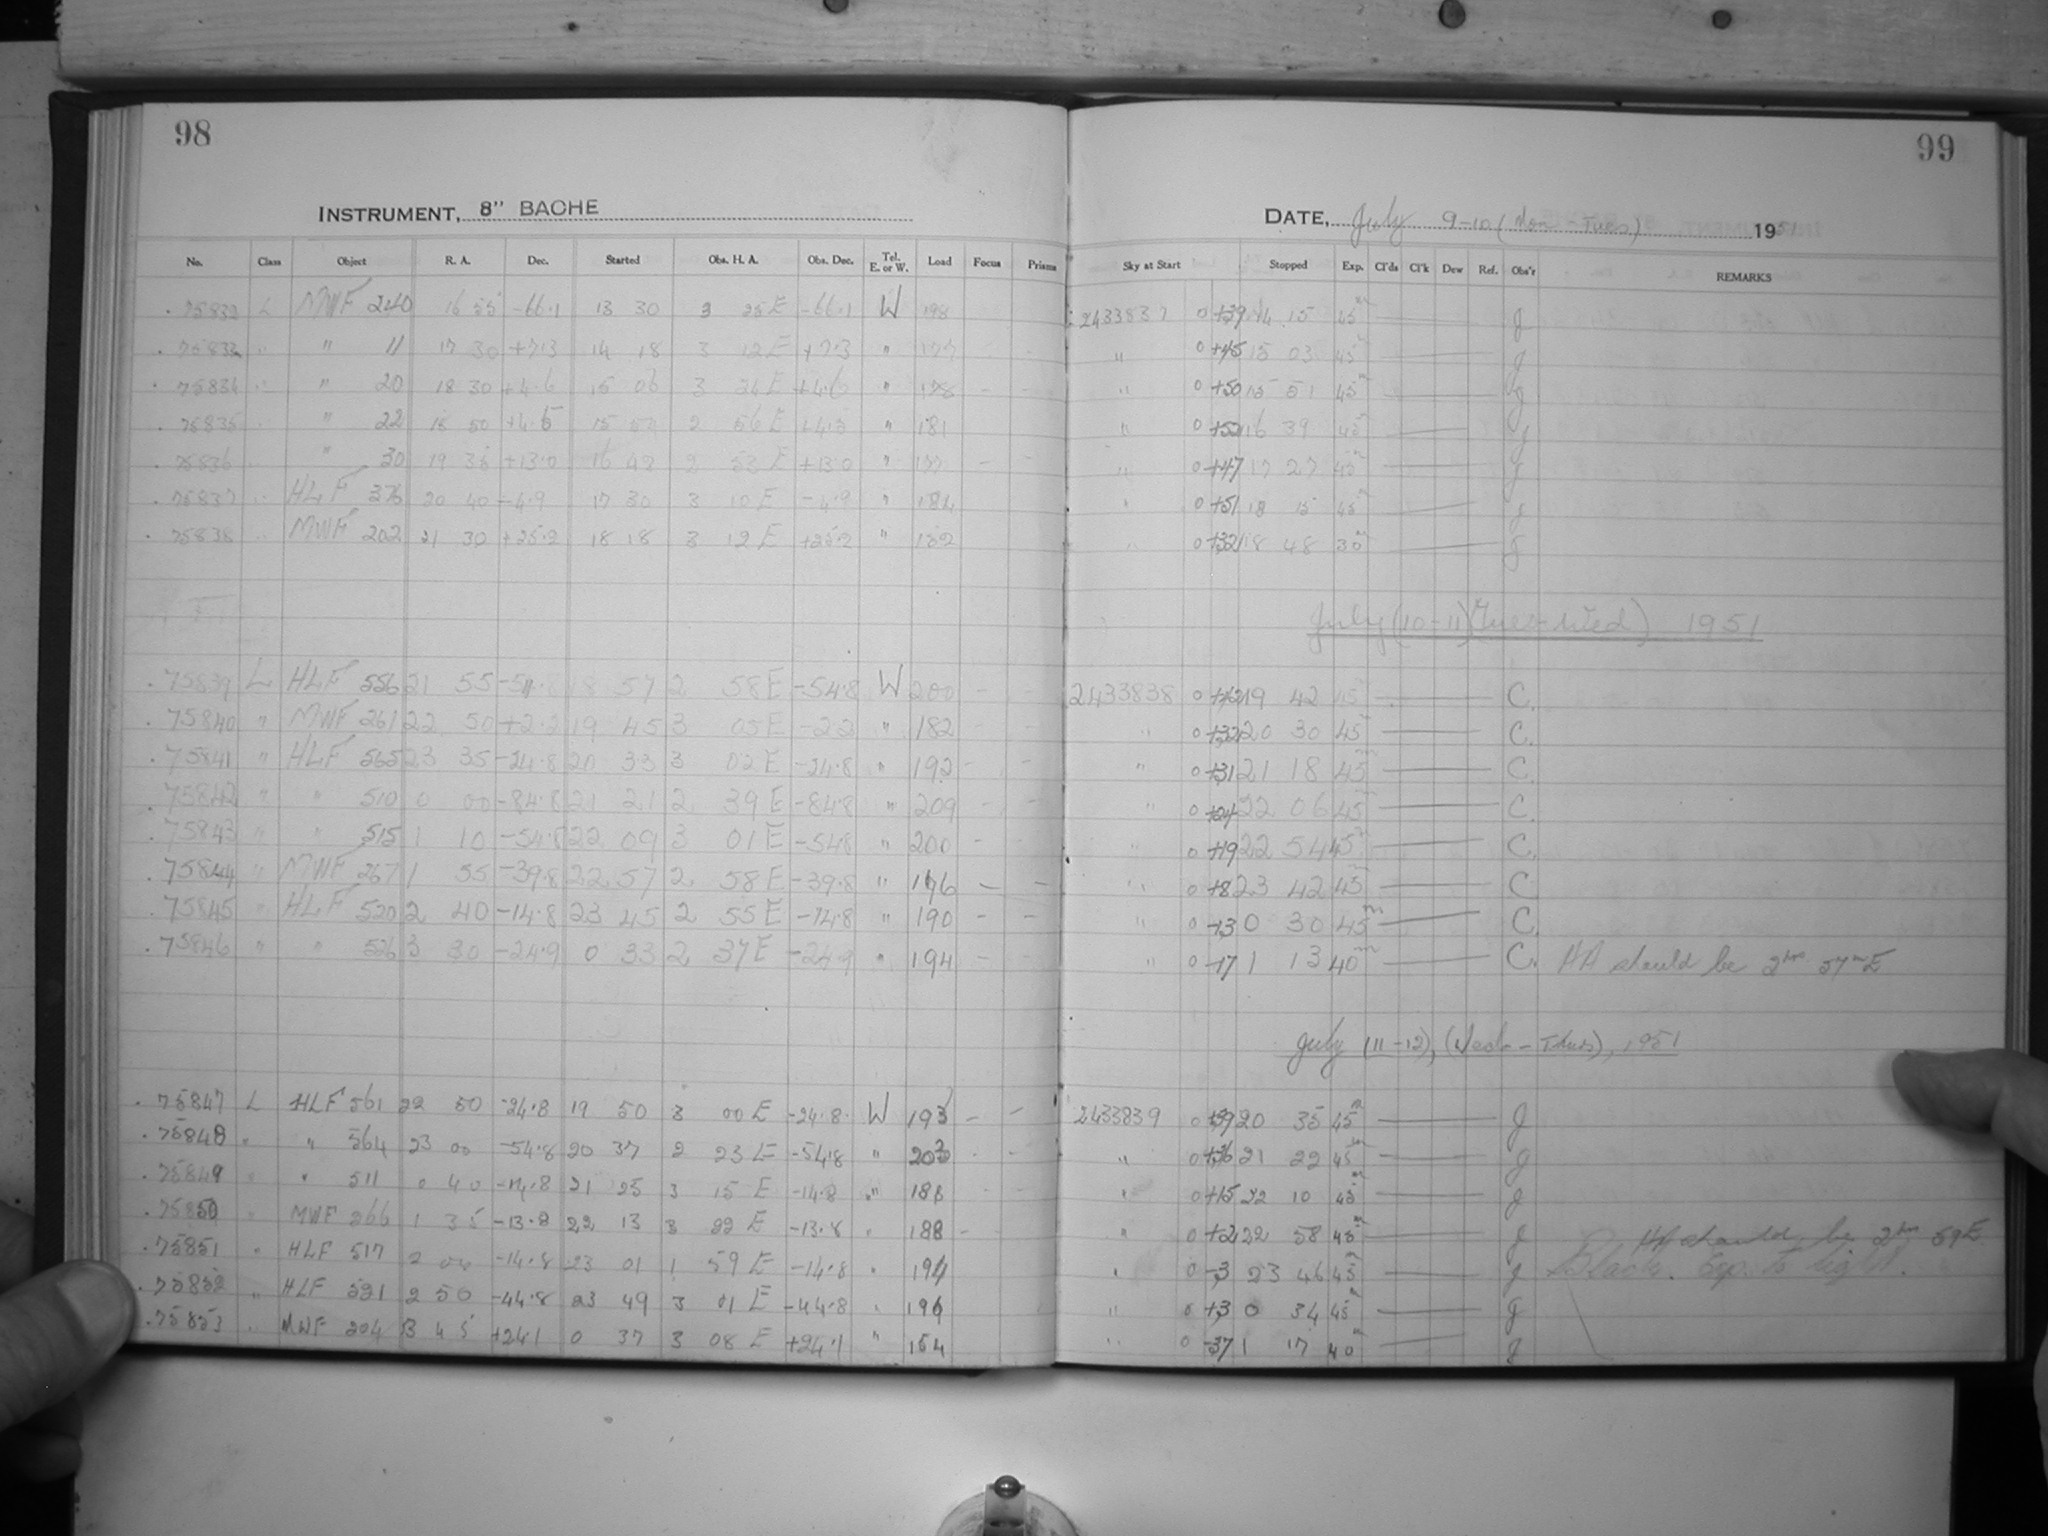 98
99
INSTRUMENT, 8" BACHE
DATE, July 9-10 (Mon - Tues) 1951
No. Class Object R. A. Dec. Started Obs. H. A. Obs. Dec. Tel. E. or W. Load Focus Prisms Sky at Start Stopped Exp. Cl'ds Cl'k Dew Ref. Obs'r REMARKS
75832 L MWF 240 16 55 -66.1 13 30 3 25 E -66.1 W 198 2433837 0 +39 14 15 45m J
75833 " " 11 17 30 +7.3 14 18 3 12 E +7.3 " 177 " 0 +45 15 03 45m J
75834 " " 20 18 30 +4.6 15 06 3 24 E +4.6 " 178 - - " 0 +50 15 51 45m J
75835 " " 22 18 50 +4.5 15 54 2 56 E +4.5 " 181 " 0 +52 16 39 45m J
75836 " " 30 19 35 +13.0 16 42 2 53 E +13.0 " 177 - - " 0 +47 17 27 45m J
75837 " HLF 376 20 40 -4.9 17 30 3 10 E -4.9 " 184 " 0 +51 18 15 45m J
75838 MWF 202 21 30 +25.2 18 18 3 12 E +25.2 " " 0 +32 18 48 30m J
July (10-11) (Tues-Wed) 1951
75839 L HLF 556 21 55 -54.8 18 57 2 58 E -54.8 W 200 - - 2433838 0 +42 19 42 45m C.
75840 " MWF 261 22 50 +2.2 19 45 3 05 E -2.2 " 182 - - " 0 +32 20 30 45m C.
75841 " HLF 565 23 35 -24.8 20 33 3 02 E -24.8 " 192 - - " 0 +31 21 18 45m C.
75842 " " 510 0 00 -84.8 21 21 2 39 E -84.8 " 209 - - " 0 +24 22 06 45m C
75843 " " 515 1 10 -54.8 22 09 3 01 E -54.8 " 200 - - " 0 +19 22 54 45m C.
75844 " MWF 267 1 55 -39.8 22 57 2 58 E -39.8 " 196 - - " 0 +8 23 42 45m C
75845 " HLF 520 2 40 -14.8 23 45 2 55 E -14.8 " 190 - - " 0 +3 0 30 45m C.
75846 " " 526 3 30 -24.9 0 33 2 37 E -24.9 " 194 - - " 0 -17 1 13 40m C. HA should be 2hrs 57m E
July (11-12), (Wed - Thurs), 1951
75847 L HLF 561 22 50 -24.8 19 50 3 00 E -24.8 W 193 - - 2433839 0 +39 20 35 45m J
75848 " " 564 23 00 -54.8 20 37 2 23 E -54.8 " 203 - - " 0 +36 21 22 45m J
75849 " " 511 0 40 -14.8 21 25 3 15 E -14.8 " 188 - - " 0 +15 22 10 45m J
75850 " MWF 266 1 35 -13.8 22 13 3 22 E -13.8 " 188 - " 0 +2 22 58 45m J HA should be 2hrs 59 E
75851 " HLF 517 2 00 -14.8 23 01 1 59 E -14.8 " 194 " 0 -3 23 46 45m J Black. Exp. to light.
75852 " HLF 521 2 50 -44.8 23 49 3 01 E -44.8 " 196 " 0 +3 0 34 45m J
75853 " MWF 204 3 45 +24.1 0 37 3 08 E +24.1 " 164 " 0 -37 1 17 40m J